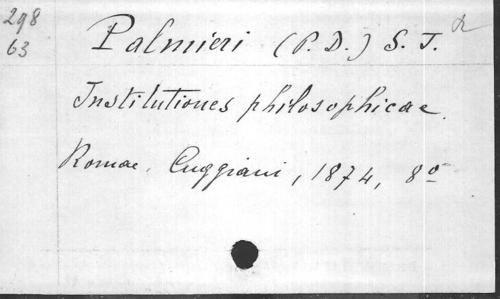 298
63
Palmieri (P. D.) S. J.
Institutiones philosophicae.
Romae, Cuggiani, 1874, 8º